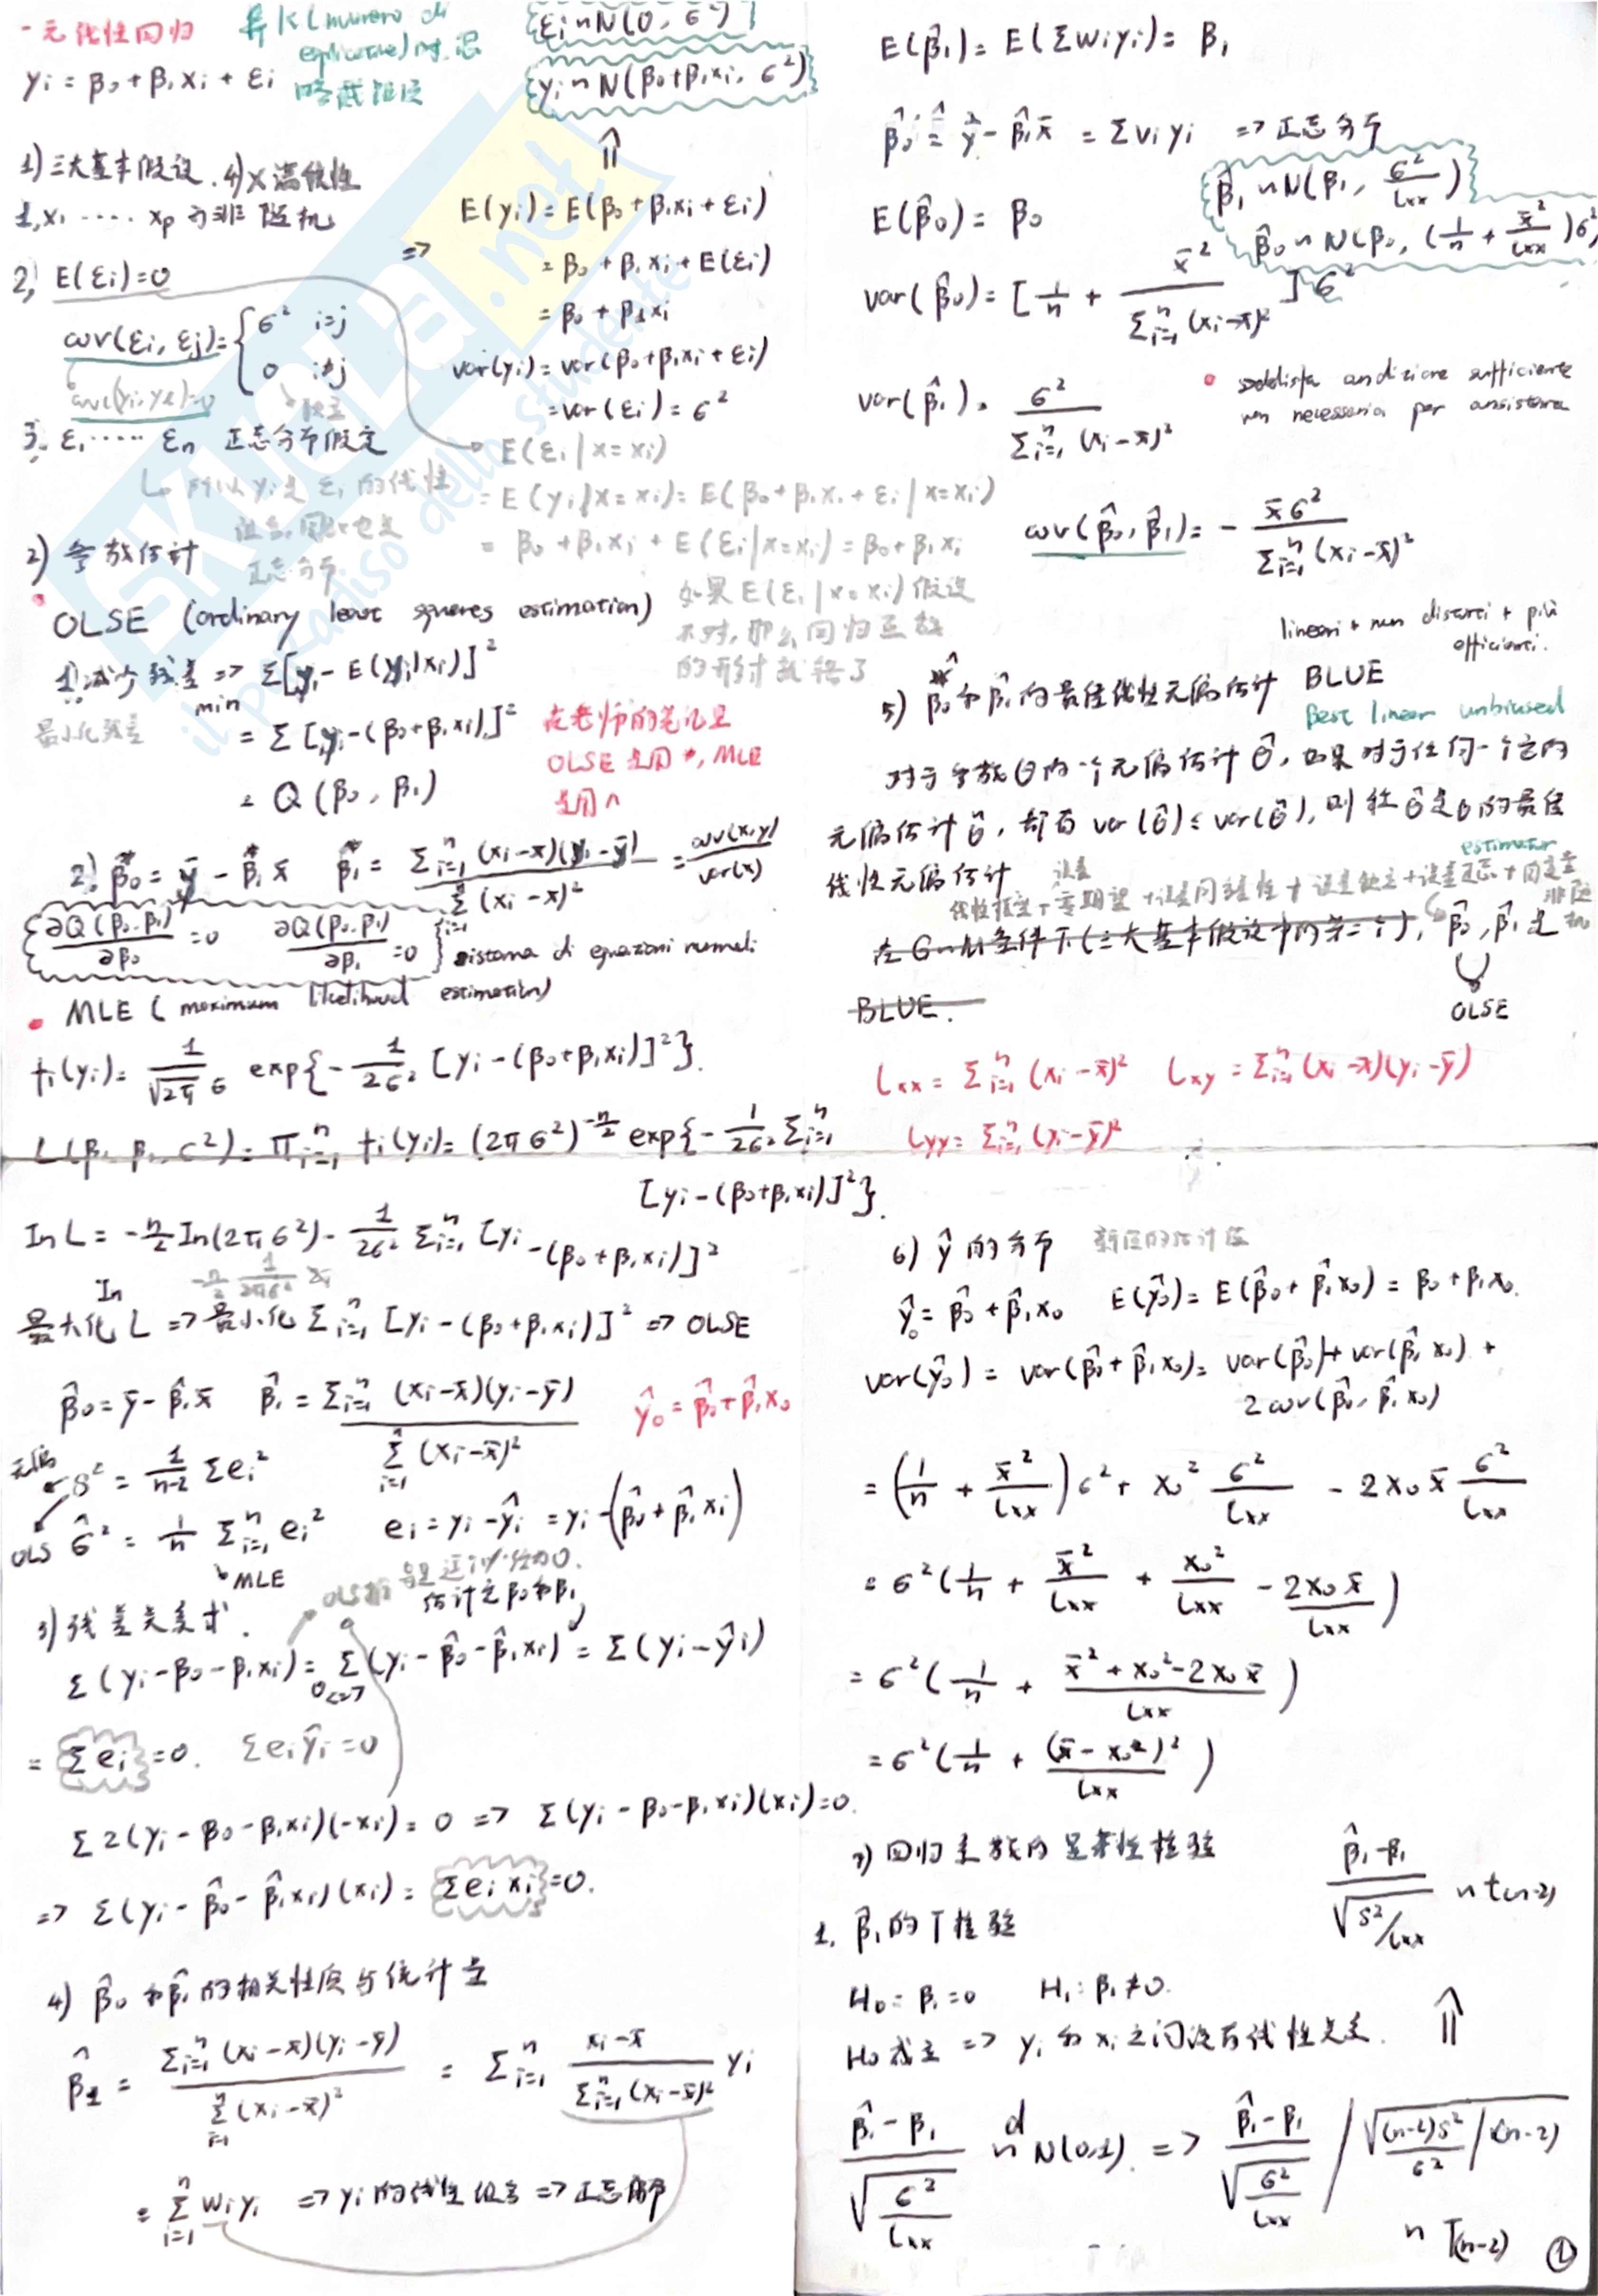 一元线性回归
y_i = β_0 + β_1 x_i + ε_i
ε_i ~ N(0, σ²)
y_i ~ N(β_0+β_1 x_i, σ²)
1) 三大基本假设. 4) X 满秩性
1, x_1 ····· x_p 为非随机
2, E(ε_i)=0
cov(ε_i, ε_j) = { σ² i=j
0 i≠j
独立
3. ε_1 ····· ε_n 正态分布假定
↳ 所以 y_i 是 ε_i 的线性
组合, 同时也是
正态分布.
=> E(y_i) = E(β_0 + β_1 x_i + ε_i)
= β_0 + β_1 x_i + E(ε_i)
= β_0 + β_1 x_i
var(y_i) = var(β_0+β_1 x_i + ε_i)
= var(ε_i) = σ²
E(ε_i | x=x_i)
= E(y_i | x=x_i) = E(β_0 + β_1 x_i + ε_i | x=x_i)
= β_0 + β_1 x_i + E(ε_i | x=x_i) = β_0 + β_1 x_i
如果 E(ε_i | x=x_i) 假设
不对, 那么回归函数
的形式就错了
2) 参数估计
OLSE (ordinary least squares estimation)
1) 减少残差 => Σ[y_i - E(y_i|x_i)]²
min
最小化残差
= Σ[y_i-(β_0+β_1 x_i)]²
= Q(β_0, β_1)
在老师的笔记里
OLSE 是用 *, MLE
是用 ^
2) β_0* = ȳ - β_1* x̄ β_1* = Σ_{i=1}^n (x_i-x̄)(y_i-ȳ) / Σ_{i=1}^n (x_i-x̄)² = cov(x,y)/var(x)
∂Q(β_0,β_1)/∂β_0 = 0 ∂Q(β_0,β_1)/∂β_1 = 0 } sistema di equazioni normali
MLE (maximum likelihood estimation)
f_i(y_i) = 1/(√2π σ) exp{- 1/2σ² [y_i-(β_0+β_1 x_i)]²}.
L(β_0, β_1, σ²) = Π_{i=1}^n f_i(y_i) = (2πσ²)^{-n/2} exp{- 1/2σ² Σ_{i=1}^n
[y_i-(β_0+β_1 x_i)]²}.
ln L = -n/2 ln(2πσ²) - 1/2σ² Σ_{i=1}^n [y_i-(β_0+β_1 x_i)]²
最大化 ln L => 最小化 Σ_{i=1}^n [y_i-(β_0+β_1 x_i)]² => OLSE
β̂_0 = ȳ - β̂_1 x̄ β̂_1 = Σ_{i=1}^n (x_i-x̄)(y_i-ȳ) / Σ_{i=1}^n (x_i-x̄)² ŷ_0 = β̂_0+β̂_1 x_0
无偏 S² = 1/(n-2) Σe_i²
OLS σ̂² = 1/n Σ_{i=1}^n e_i² e_i = y_i-ŷ_i = y_i-(β̂_0+β̂_1 x_i)
MLE
估计之 β_0 和 β_1
3) 残差关系式.
Σ(y_i-β_0-β_1 x_i) = Σ(y_i-β̂_0-β̂_1 x_i) = Σ(y_i-ŷ_i)
0 <=>
= Σe_i = 0. Σe_i ŷ_i = 0
Σ2(y_i-β_0-β_1 x_i)(-x_i) = 0 => Σ(y_i-β_0-β_1 x_i)(x_i)=0.
=> Σ(y_i-β̂_0-β̂_1 x_i)(x_i) = Σe_i x_i = 0.
4) β̂_0 和 β̂_1 的相关性质与统计量
β̂_1 = Σ_{i=1}^n (x_i-x̄)(y_i-ȳ) / Σ_{i=1}^n (x_i-x̄)² = Σ_{i=1}^n (x_i-x̄) / Σ_{i=1}^n (x_i-x̄)² y_i
= Σ_{i=1}^n w_i y_i => y_i 的线性组合 => 正态分布
E(β̂_1) = E(Σw_i y_i) = β_1
β̂_0 = ȳ - β̂_1 x̄ = Σv_i y_i => 正态分布
β̂_1 ~ N(β_1, σ²/Lxx)
β̂_0 ~ N(β_0, (1/n + x̄²/Lxx)σ²)
E(β̂_0) = β_0
var(β̂_0) = [1/n + x̄²/Σ_{i=1}^n (x_i-x̄)²]σ²
var(β̂_1) = σ²/Σ_{i=1}^n (x_i-x̄)²
soddisfa condizione sufficiente
non necessaria per consistenza
cov(β̂_0, β̂_1) = - x̄σ²/Σ_{i=1}^n (x_i-x̄)²
lineari + non distorti + più
efficienti.
5) β̂_0 和 β̂_1 的最佳线性无偏估计 BLUE
Best linear unbiased
estimator
对于参数θ的一个无偏估计θ̂, 如果对于任何一个它的
无偏估计θ̃, 都有 var(θ̂) ≤ var(θ̃), 则称θ̂是θ的最佳
线性无偏估计
线性模型+误差零期望+误差同方差性+误差独立+误差正态+自变量
非随机
在 G-M 条件下(三大基本假设中的第二个), β̂_0, β̂_1 是
BLUE.
OLSE
Lxx = Σ_{i=1}^n (x_i-x̄)² Lxy = Σ_{i=1}^n (x_i-x̄)(y_i-ȳ)
Lyy = Σ_{i=1}^n (y_i-ȳ)²
6) ŷ 的分布 新值的估计值
ŷ_0 = β̂_0 + β̂_1 x_0 E(ŷ_0) = E(β̂_0 + β̂_1 x_0) = β_0 + β_1 x_0.
var(ŷ_0) = var(β̂_0+β̂_1 x_0) = var(β̂_0)+var(β̂_1 x_0) +
2cov(β̂_0, β̂_1 x_0)
= (1/n + x̄²/Lxx)σ² + x_0² σ²/Lxx - 2x_0 x̄ σ²/Lxx
= σ²(1/n + x̄²/Lxx + x_0²/Lxx - 2x_0 x̄/Lxx)
= σ²(1/n + (x̄²+x_0²-2x_0 x̄)/Lxx)
= σ²(1/n + (x̄-x_0)²/Lxx)
7) 回归系数的显著性检验
1. β̂_1 的 T 检验
(β̂_1-β_1)/√(S²/Lxx) ~ t(n-2)
H_0: β_1=0 H_1: β_1≠0.
H_0 成立 => y_i 和 x_i 之间没有线性关系.
(β̂_1-β_1)/√(σ²/Lxx) ~ᵈ N(0,1). => (β̂_1-β_1)/√(σ²/Lxx) / √((n-2)S²/σ² /(n-2))
~ T(n-2)
①
SKUOLA.net
il paradiso dello studente